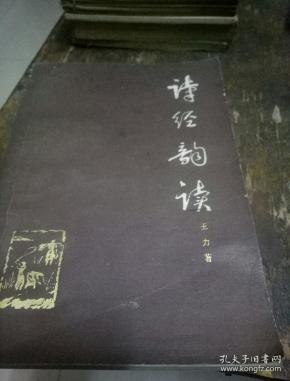 诗经韵读
王力著
孔夫子旧书网
www.kongfz.com